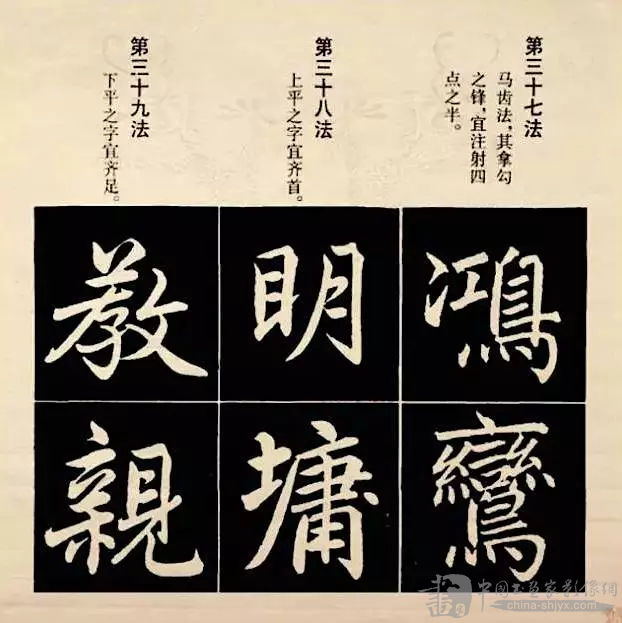 第三十七法
马齿法，其拿勾
之锋，宜注射四
点之半。
鴻
鸞
第三十八法
上平之字宜齐首。
明
墉
第三十九法
下平之字宜齐足。
教
親
中国书画家影像網
china-shjyx.com